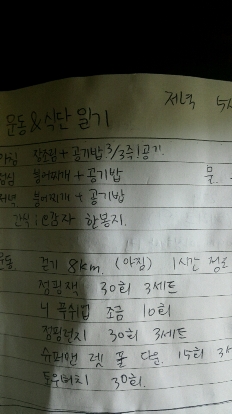 저녁
운동 & 식단 일기
아침 장조림 + 공기밥. 2/3공기.
점심 참치찌개 + 공기밥
저녁 참치찌개 + 공기밥
물.
간식 : 감자 한봉지.
운동. 걷기 8km. (아침) 1시간 정도
점핑잭 30회 3세트
니 푸쉬업 조금 10회
점핑런지 30회 3세트
슈퍼맨 렛 풀 다운. 15회 3세
토우터치 30회.